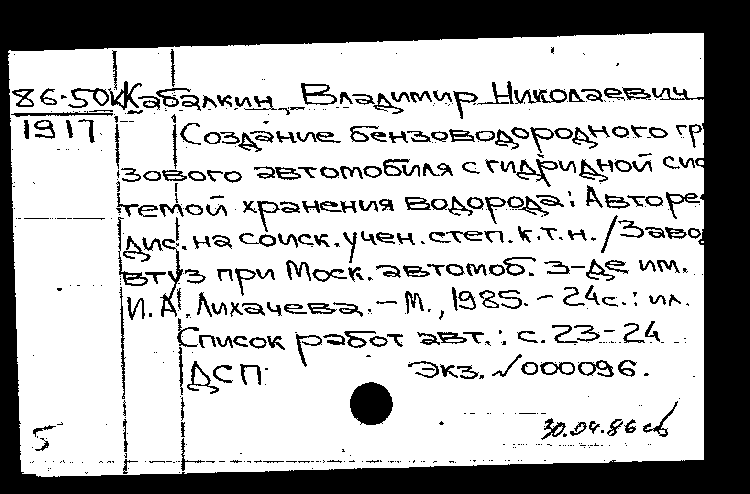 86-50к Кабалкин, Владимир Николаевич
1917
Создание бензоводородного гру
зового автомобиля с гидридной сис
темой хранения водорода: Авторе
дис. на соиск. учен. степ. к.т.н. / Завод
втуз при Моск. автомоб. з-де им.
И. А. Лихачева. - М., 1985. - 24с.: ил.
Список работ авт.: с. 23-24
ДСП Экз. √000096.
5
30.04.86